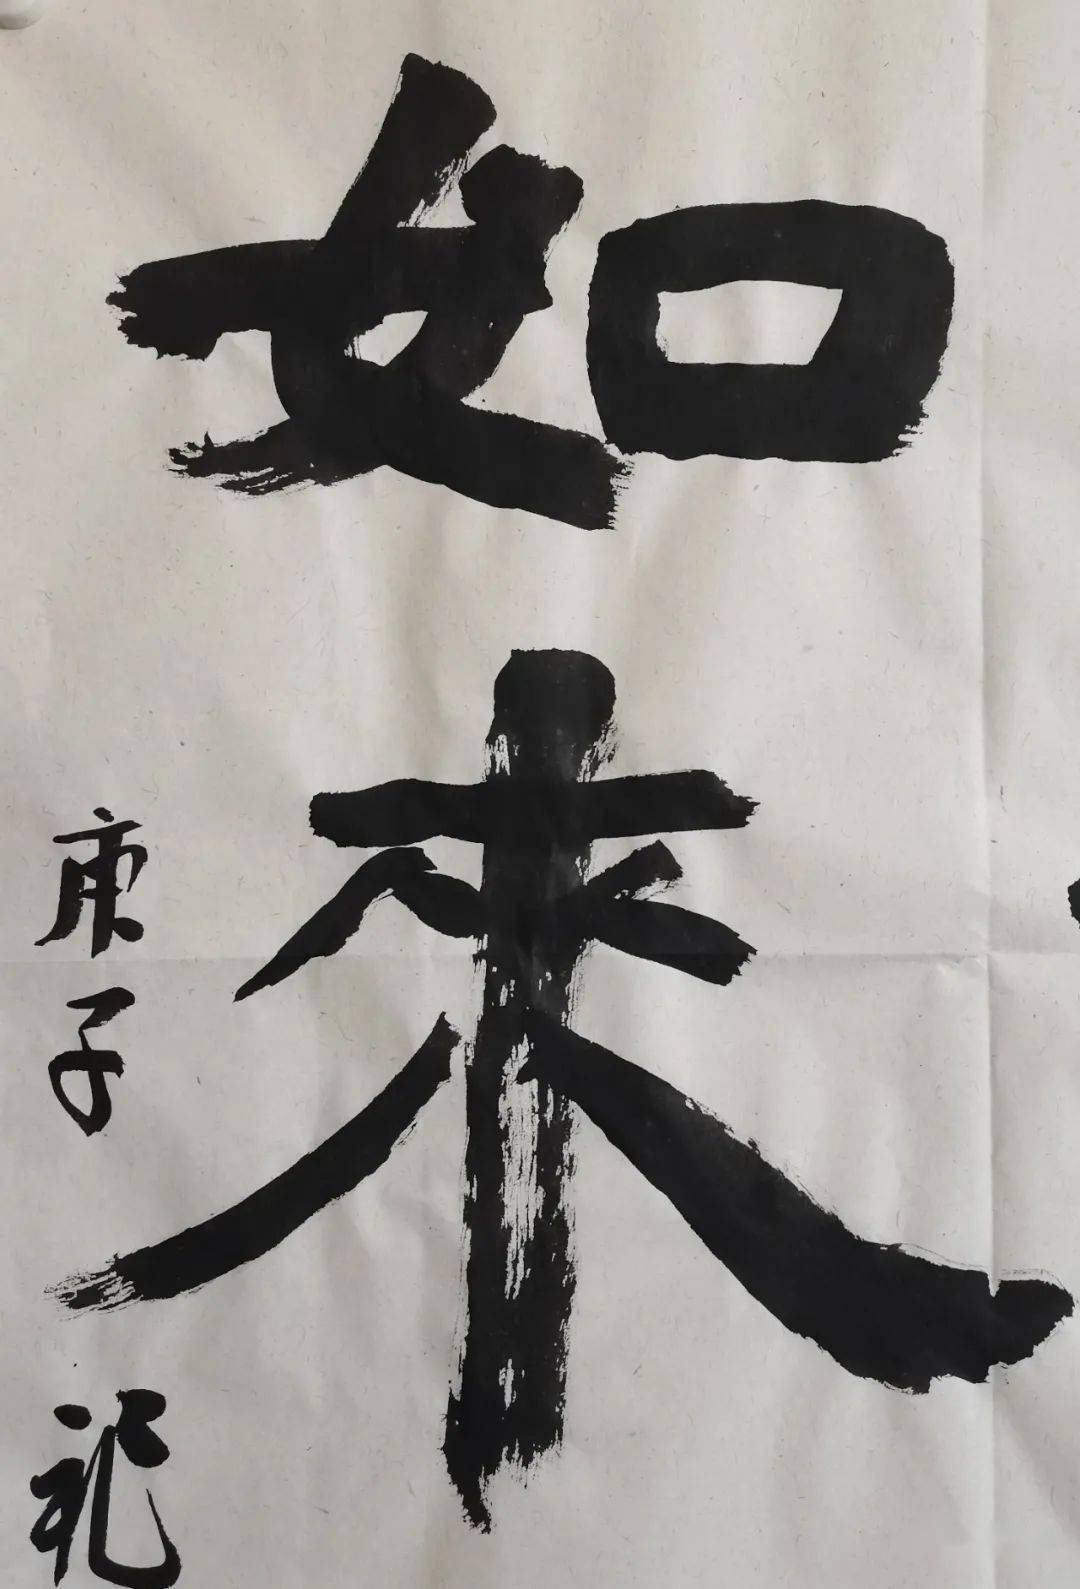 如來
庚子祀